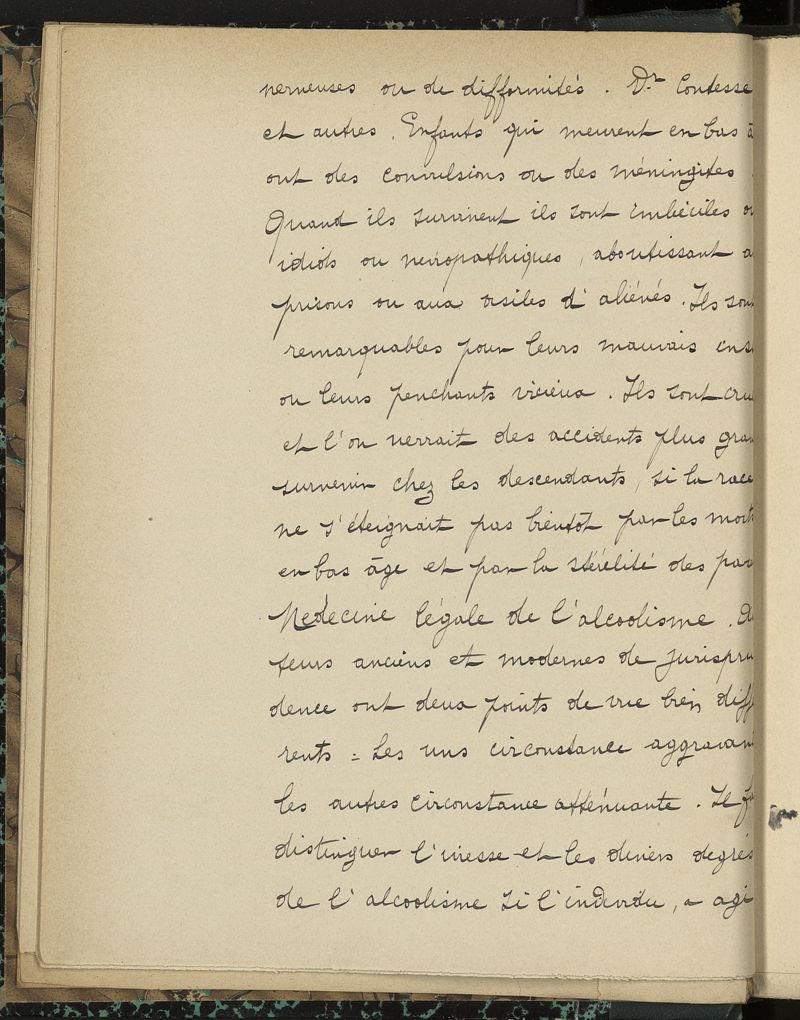 nerveuses ou de difformités. Dr. Contesse
et autres. Enfants qui meurent en bas â
ont des convulsions ou des méningites.
Quand ils survivent ils sont imbéciles ou
idiots ou névropathiques, aboutissant a
prisons ou aux asiles d'aliénés. Ils son
remarquables pour leurs mauvais ins
ou leurs penchants vicieux. Ils sont cru
et l'on verrait des accidents plus gra
survenir chez les descendants, si la race
ne s'éteignait pas bientôt par les morts
en bas âge et par la stérélité des par
Médecine légale de l'alcoolisme.
teurs anciens et modernes de jurispru
dence ont deux points de vue bien diff
rents = Les uns circonstance aggravan
les autres circonstance atténuante. Il f
distinguer l'ivresse et les divers degrés
de l'alcoolisme si l'individu, a agi